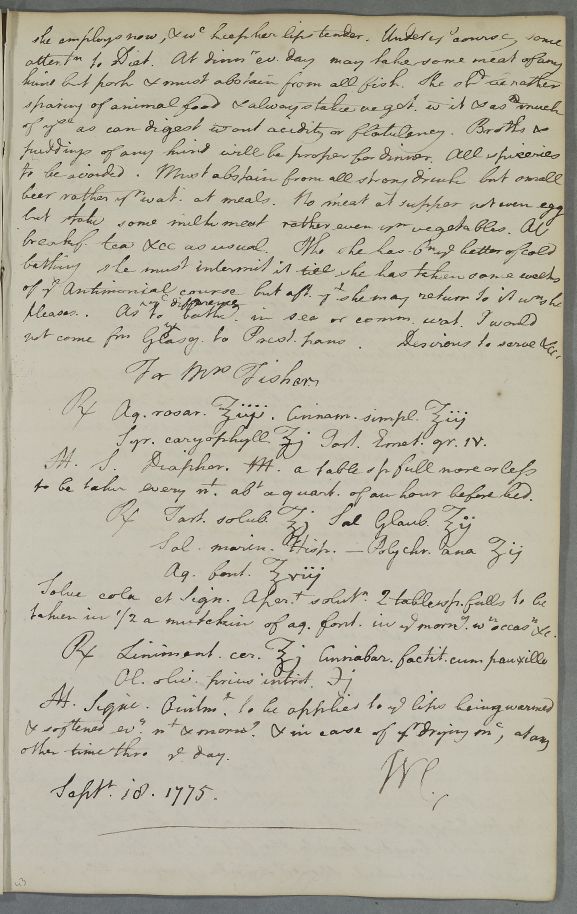 she employs now, & wc keep her lips tender. Under ys course, some
attentn to Diet. At dinnr ev. day may take some meat of any
kind but pork & must abstain from all fish. She shd be rather
sparing of animal food & always take veget. wt it & as much
of ym as can digest wtout acidity or flatulency. Broths &
puddings of any kind will be proper for dinner. All spiceries
to be avoided. Must abstain from all strong drink but small
beer rather yn wat. at meals. No meat at supper not even egg
but take some milk meat rather even yn vegetables. At
breakf. tea &cc as usual. Tho she has been ye better of cold
bathing she must intermit it till she has taken some weeks
of ye Antimonial course but aft. yt she may return to it wn she
pleases. As to ye difference bathg. in sea or comm. wat. I would
not come frm Glasg. to Prest. pans. Desirous to serve &cc.
For Mrs Fisher
℞ Aq. rosar. ℥iiij. Cinnam. simpl. ℥iij
Syr. caryophyll. ℥j Tart. Emet. gr. iv.
M. S. Diaphor. M. a tablespfull more or less
to be taken every nt. abt a quart. of an hour before bed.
℞ Tart. solub. ℥j Sal Glaub. ℥ij
Sal. marin. Hisp. — Polychr. ana ℥ij
Aq. font. ℥viij
Solve cola et Sign. Apert. solutn. 2 tablesp.fulls to be
taken in 1/2 a mutchkin of aq. font. in ye morng. wn occasn &c.
℞ Liniment. cer. ℥j Cinnabar. factit. cum pauxillo
Ol. oliv. prius intrit. ʒj
M. Signe. Ointmt. to be applied to ye lips being warmed
& softened evy. nt & morng. & in case of yr drying mc, at any
other time thro ye day.
WC.
Septr. 18. 1775.